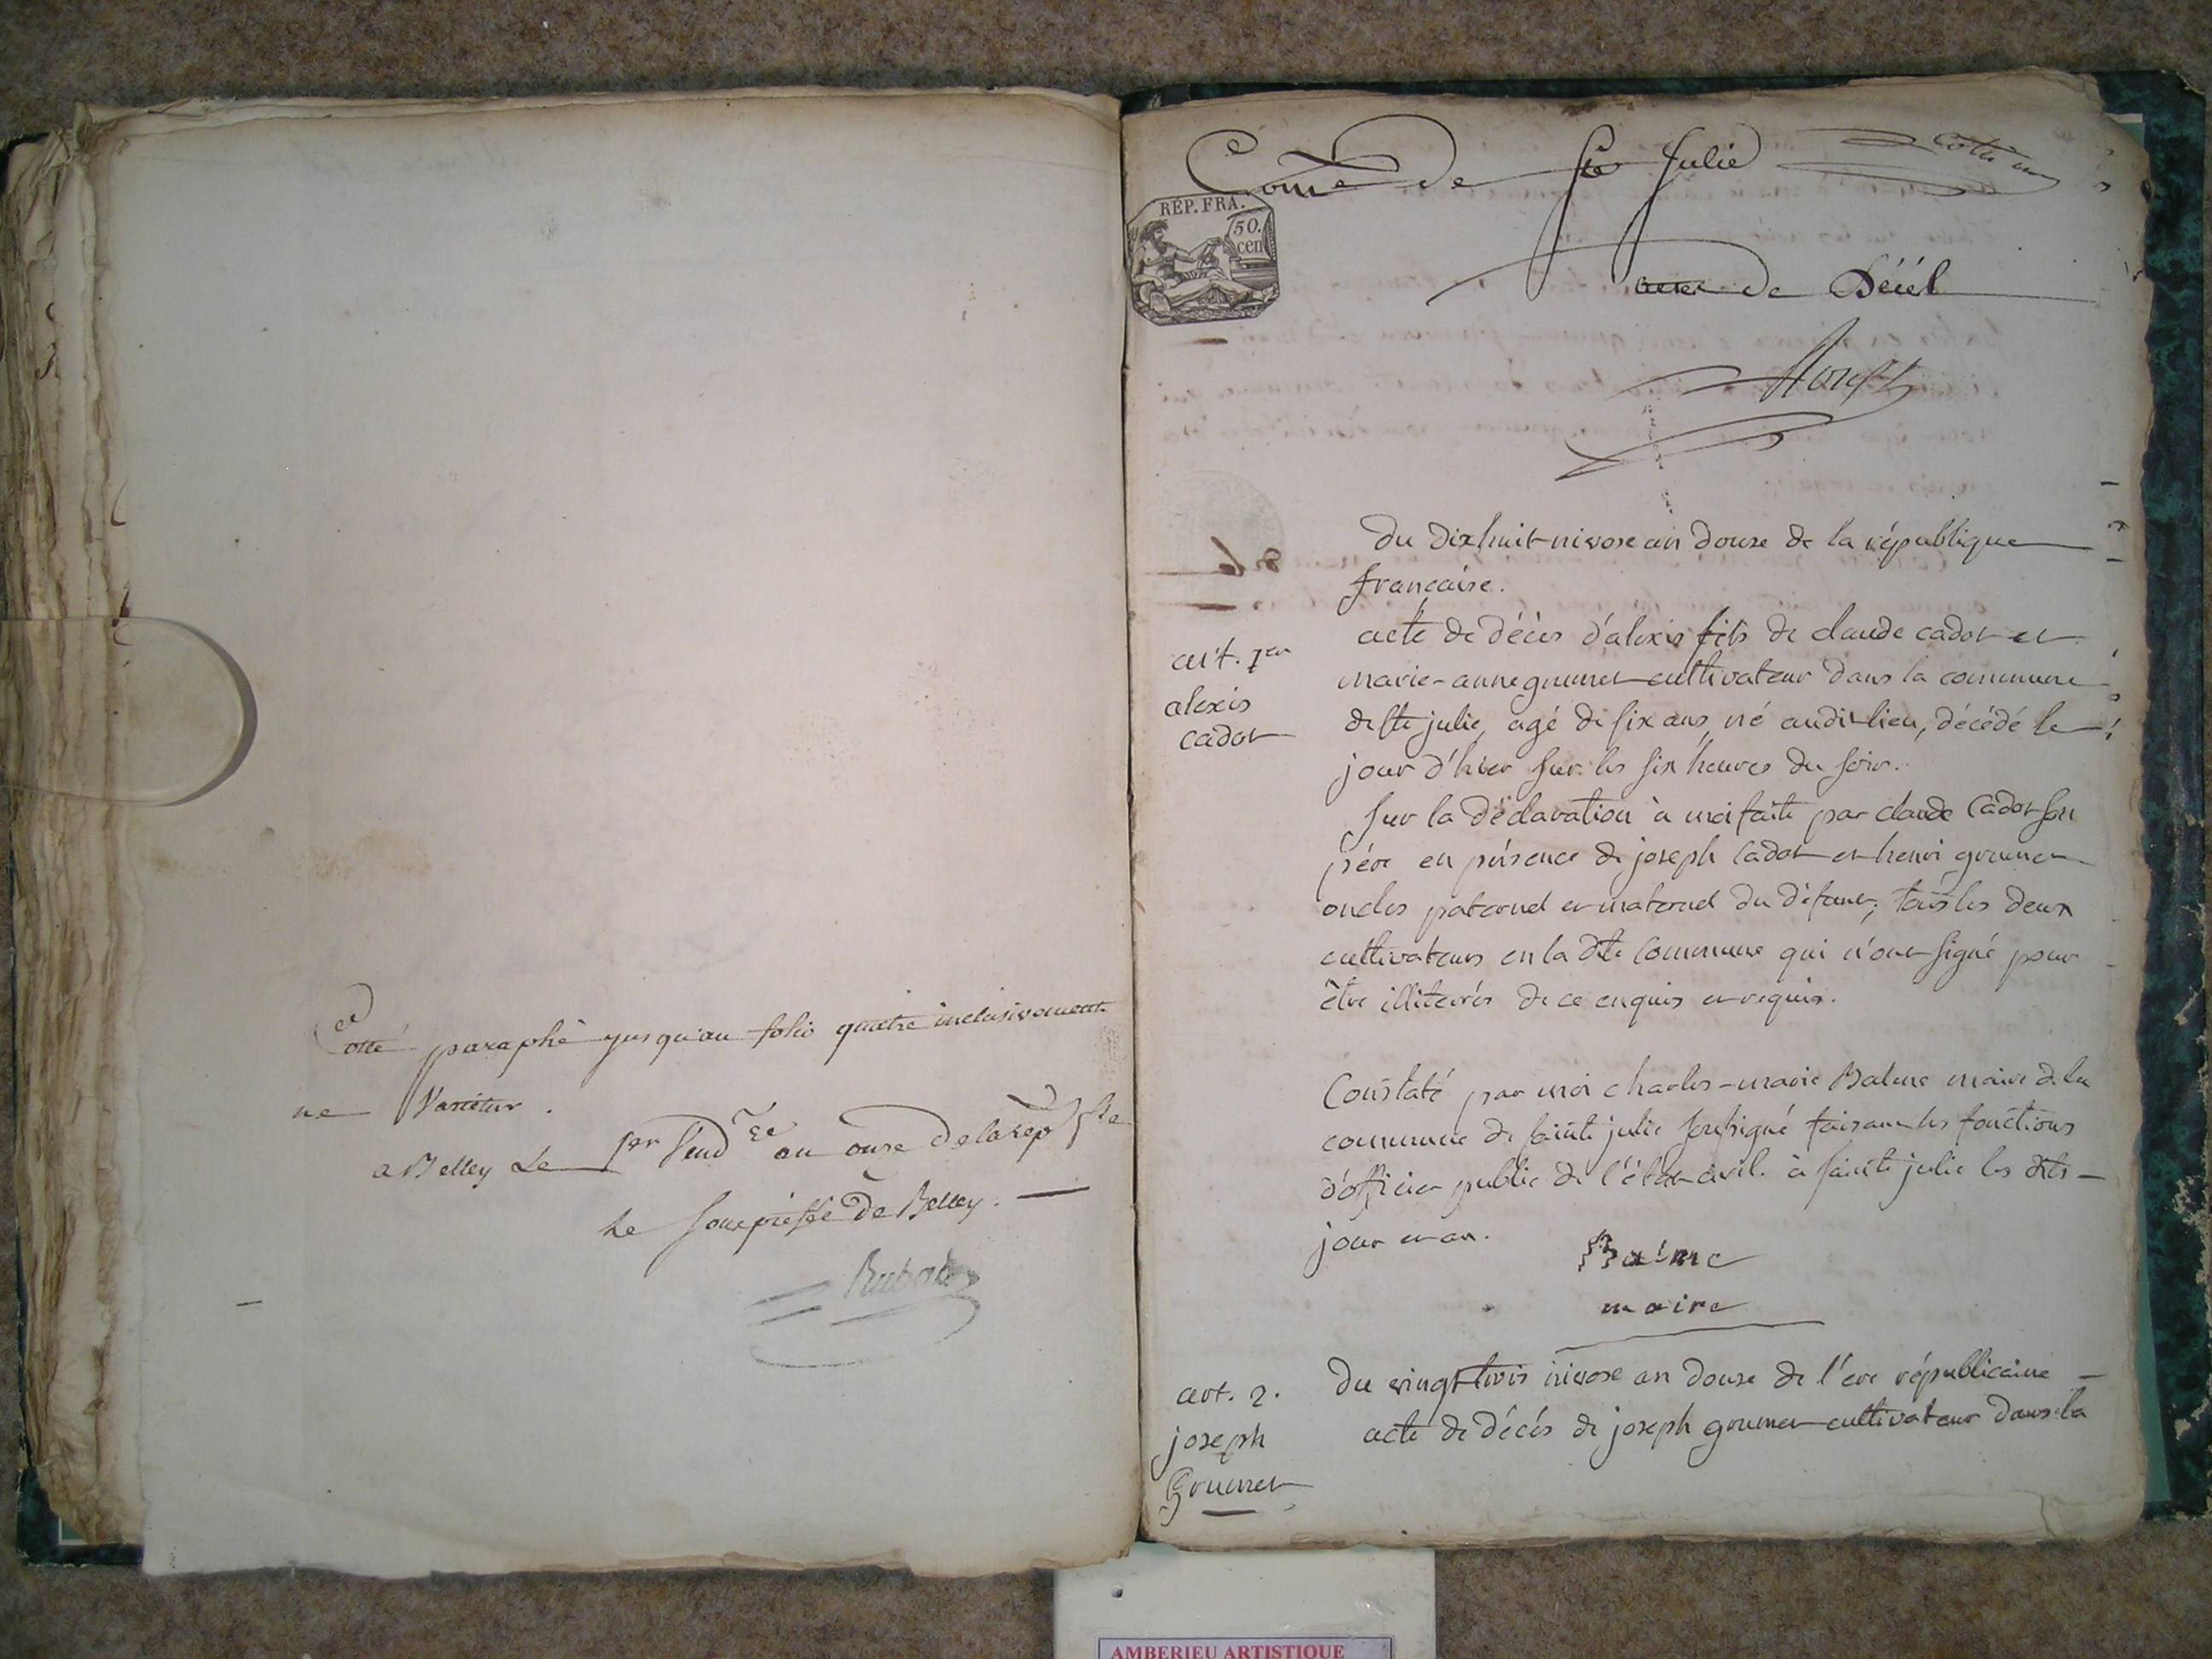 Cotté paraphé jusqu'au folio quatre inclusivement
ne Varietur.
a Belley Le 1er Vend re an onze de la rep fse
Le souspréfet de Belley.
Rubat
Comne de Ste Julie
RÉP. FRA.
50.
cen
actes de Décés
du dixhuit nivose an douze de la république
francaise.
art. 1er
alexis
cadot
acte de décès d'alexis fils de claude cadot et
marie-anne grumet cultivateur dans la commune
de ste julie, agé de six ans, né audit lieu, décédé le
jour d'hier sur les six heures du soir.
Sur la déclaration à moi faite par claude Cadot son
pére en présence de joseph Cadot et henri grumet
oncles paternel et maternel du défunt; tous les deux
cultivateurs en la dite Commune qui n'ont signé pour
être illiterés de ce enquis et requis.
Constaté par moi charles-marie Balme maire de la
commune de sainte julie soussigné faisant les fonctions
d'officier public de l'état civil. à sainte julie les dits
jour et an.
Balme
maire
art. 2.
joseph
Grumet
Du vingt trois nivose an douze de l'ére républicaine
acte de décés de joseph grumet cultivateur dans la
AMBERIEU ARTISTIQUE